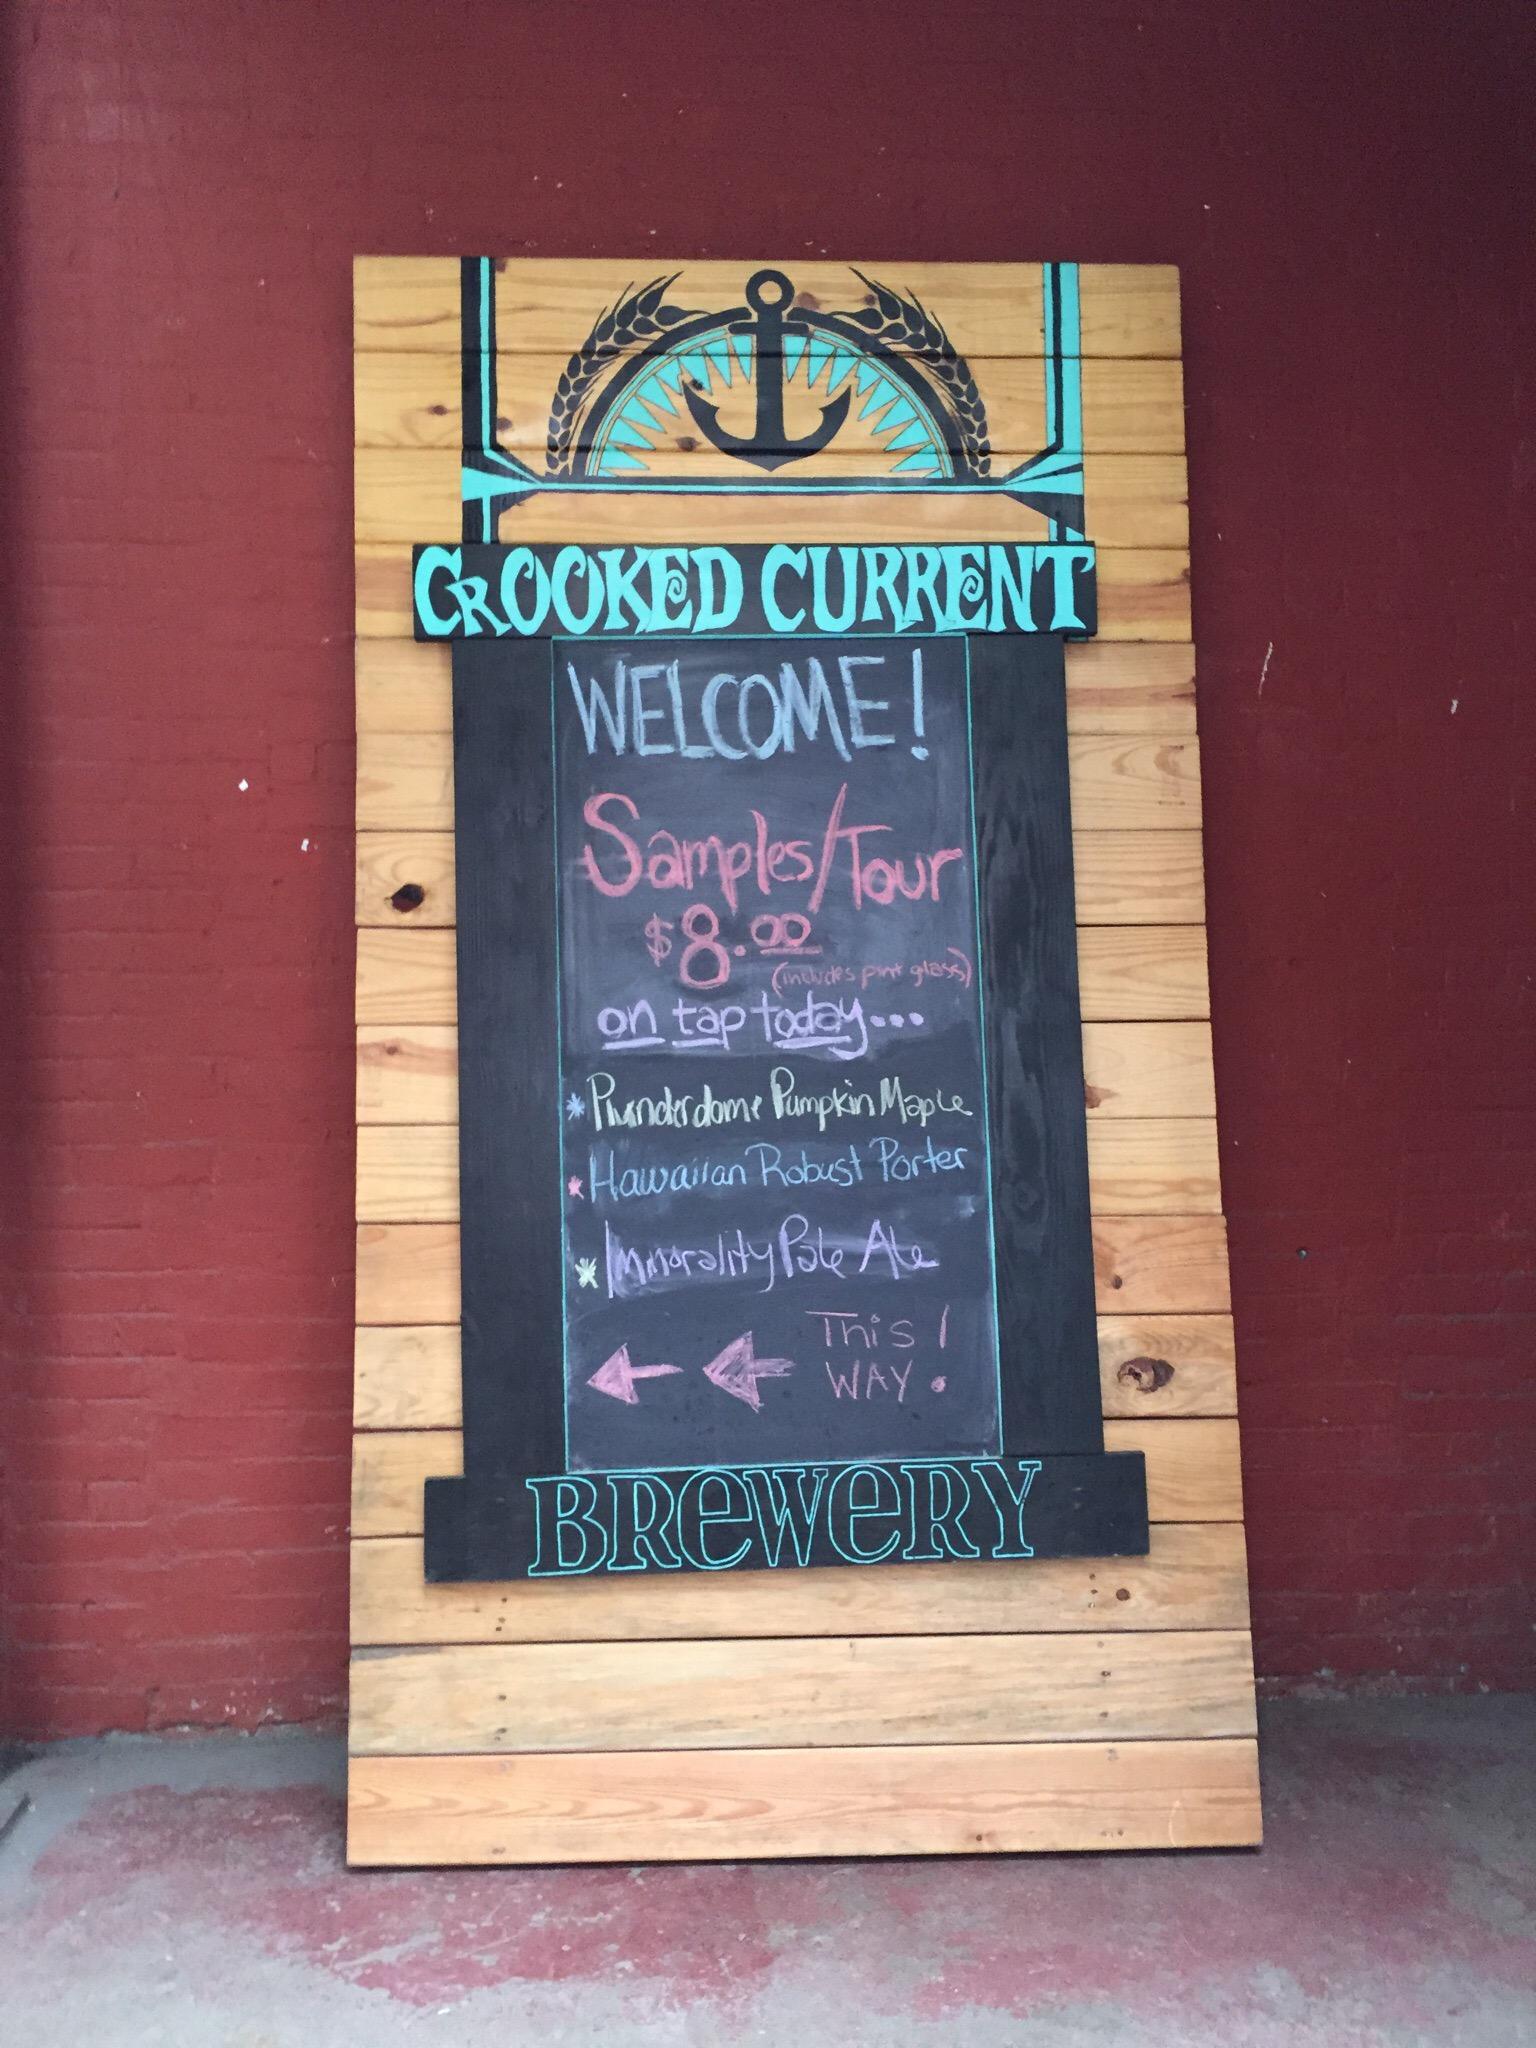 CROOKED CURRENT
WELCOME!
Samples/Tour
$8.00
(includes pint glass)
on tap today...
* Plunderdome Pumpkin Maple
* Hawaiian Robust Porter
* Immorality Pale Ale
This
WAY!
BREWERY